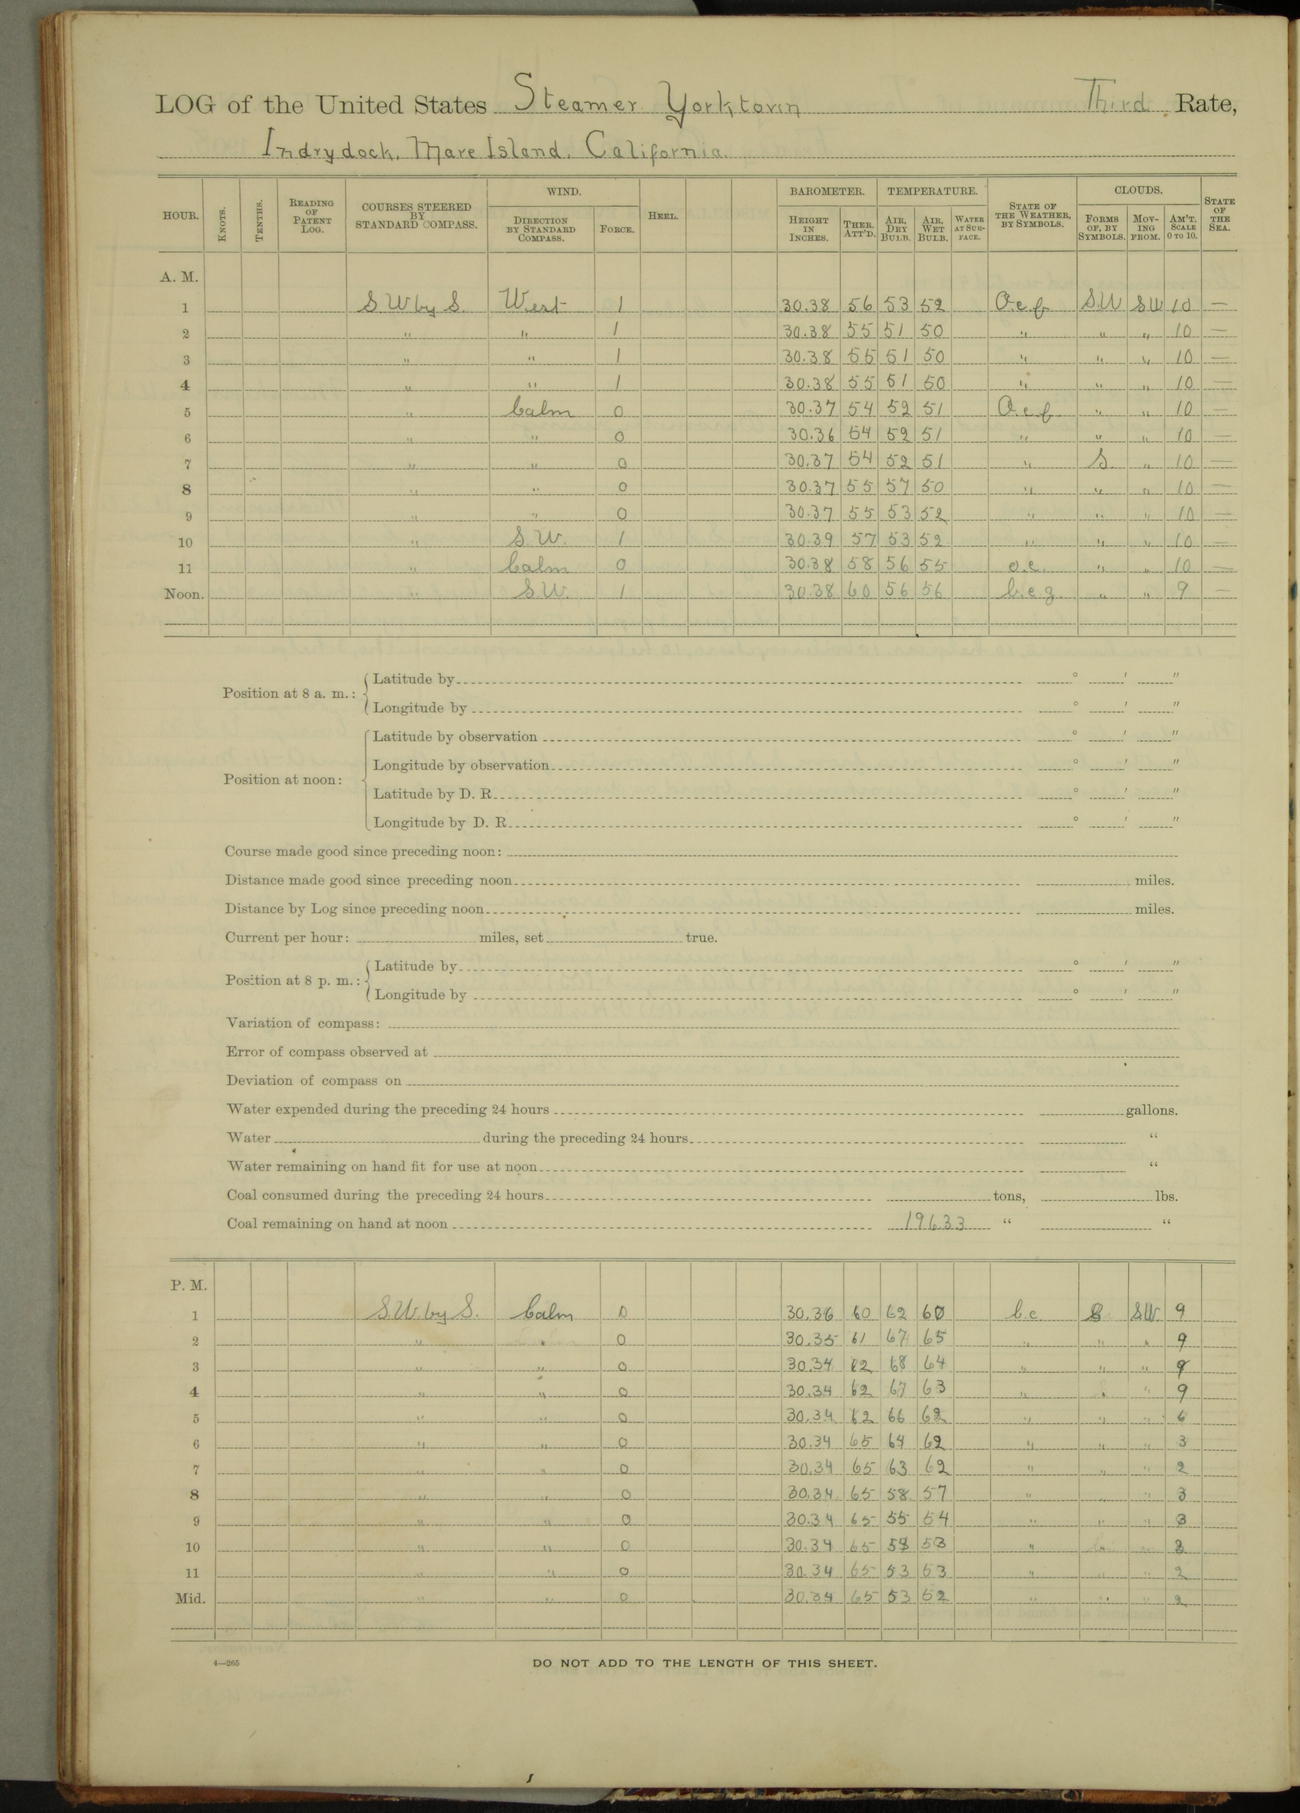 LOG of the United States Steamer Yorktown Third Rate,
Indrydock, Mare Island, California.
HOUR. KNOTS. TENTHS. READING OF PATENT LOG. COURSES STEERED BY STANDARD COMPASS. WIND. DIRECTION BY STANDARD COMPASS. FORCE. HEEL. BAROMETER. HEIGHT IN INCHES. THER. ATT'D. TEMPERATURE. AIR, DRY BULB. AIR, WET BULB. WATER AT SURFACE. STATE OF THE WEATHER, BY SYMBOLS. CLOUDS. FORMS OF, BY SYMBOLS. MOVING FROM. AM'T. SCALE 0 TO 10. STATE OF THE SEA.
A. M.
1 S W by S. West 1 30.38 56 53 52 O.c.f. S.W SW 10 —
2 " " 1 30.38 55 51 50 " " " 10 —
3 " " 1 30.38 55 51 50 " " " 10 —
4 " " 1 30.38 55 51 50 " " " 10 —
5 " Calm 0 30.37 54 52 51 O.c.f. " " 10 —
6 " " 0 30.36 54 52 51 " " " 10 —
7 " " 0 30.37 54 52 51 " S. " 10 —
8 " " 0 30.37 55 57 50 " " " 10 —
9 " " 0 30.37 55 53 52 " " " 10 —
10 " S.W. 1 30.39 57 53 52 " " " 10 —
11 " Calm 0 30.38 58 56 55 o.c. " " 10 —
Noon. " S.W. 1 30.38 60 56 56 b.c.z. " " 9 —
Position at 8 a. m.: Latitude by ° ′ ″
Longitude by ° ′ ″
Position at noon: Latitude by observation ° ′ ″
Longitude by observation ° ′ ″
Latitude by D. R. ° ′ ″
Longitude by D. R. ° ′ ″
Course made good since preceding noon:
Distance made good since preceding noon miles.
Distance by Log since preceding noon miles.
Current per hour: miles, set true.
Position at 8 p. m.: Latitude by ° ′ ″
Longitude by ° ′ ″
Variation of compass:
Error of compass observed at
Deviation of compass on
Water expended during the preceding 24 hours gallons.
Water during the preceding 24 hours "
Water remaining on hand fit for use at noon "
Coal consumed during the preceding 24 hours tons, lbs.
Coal remaining on hand at noon 196.33 " "
P. M.
1 S.W. by S. Calm 0 30.36 60 62 60 b.c. S S.W. 9
2 " " 0 30.35 61 67 65 " " " 9
3 " " 0 30.34 62 68 64 " " " 9
4 " " 0 30.34 62 67 63 " " " 9
5 " " 0 30.34 62 66 62 " " " 6
6 " " 0 30.34 65 64 62 " " " 3
7 " " 0 30.34 65 63 62 " " " 2
8 " " 0 30.34 65 58 57 " " " 3
9 " " 0 30.34 65 55 54 " " " 3
10 " " 0 30.34 65 53 53 " " 3
11 " " 0 30.34 65 53 53 " " " 2
Mid. " " 0 30.34 65 53 52 " " " 2
4—265
DO NOT ADD TO THE LENGTH OF THIS SHEET.